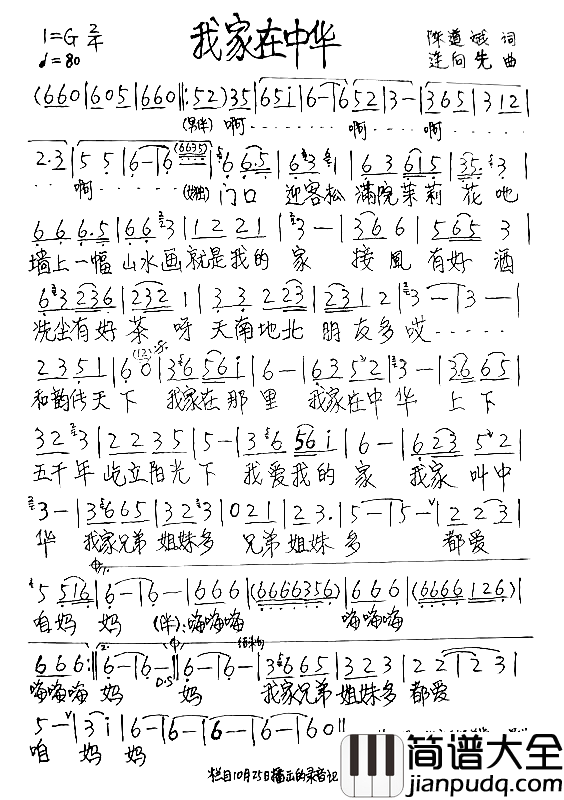 1=G 2/4 我家在中华 陈道斌 词
♩=80 连向先 曲
(660|605|660‖:52)35|651|6-|652|3-|365|312|
(男伴) 啊 啊 啊
2·3|55|6-|6 (6635) 6 66·5|63 1|63 615|35· 3|
啊 门口 迎客松 满院茉莉 花吔
666·5|66 3|1221|3-|366|565 3|
墙上一幅 山水画 就是我的 家 接風 有好 酒
63 236|232 1|33 223|231 2|3-|3-|
洗尘有好 茶呀 天南地北 朋友多 哎
2351|60|36 561|6-|63 52|3-|36 65|
和韵传天下 我家在那里 我家在中华 上下
323|2235|5-|36 561|6-|6 23 52|
五千年 屹立阳光下 我爱我的家 我家叫中
3-|3665|323|021|23·|5-|5-|223|
华 我家兄弟 姐妹多 兄弟姐妹多 都爱
5 516|6-|6-|666|(6666356)|666|(6666 126)|
咱妈 妈 (伴):嗨嗨嗨 嗨嗨嗨
666:‖6-|6-‖6-|6-|3665|323|22|223|
D.S 结束句
嗨嗨嗨 妈 妈 我家兄弟 姐妹多 都爱
5-|3i|6-|6-|6-|6-|60‖
咱 妈 妈
栏目10月25日播出的录音记
简谱大全
jianpudq.com